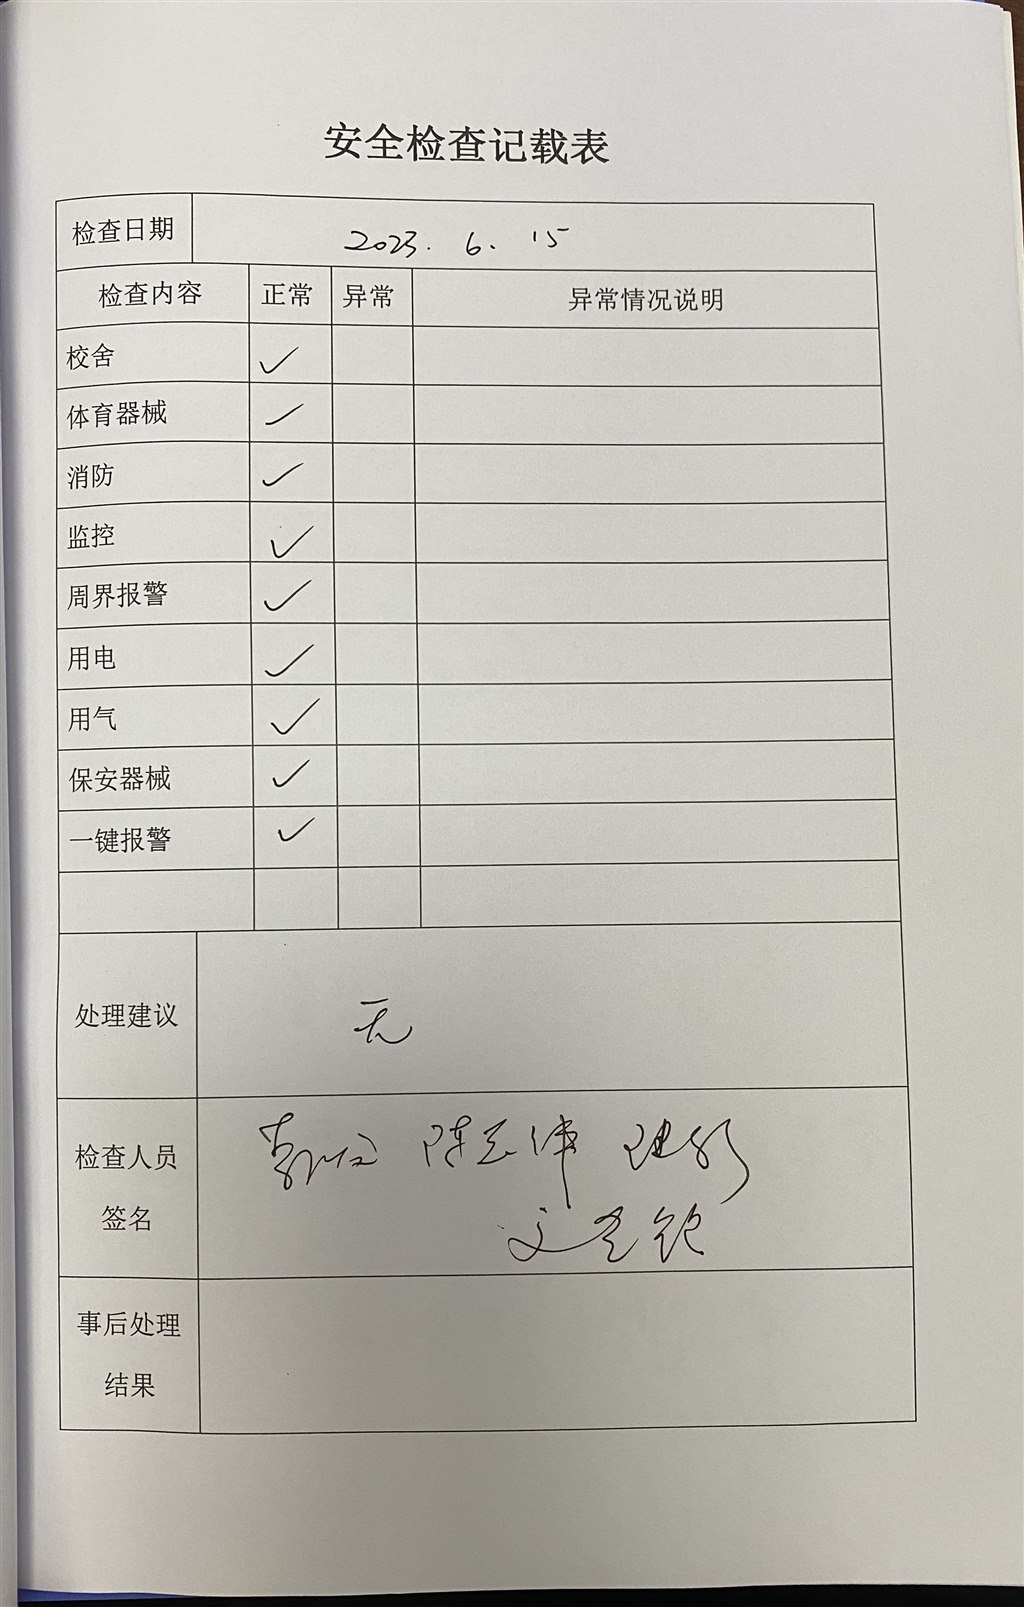 安全检查记载表
检查日期 2023. 6. 15
检查内容 正常 异常 异常情况说明
校舍 ✓
体育器械 ✓
消防 ✓
监控 ✓
周界报警 ✓
用电 ✓
用气 ✓
保安器械 ✓
一键报警 ✓
处理建议 无
检查人员
签名
陈志伟
事后处理
结果